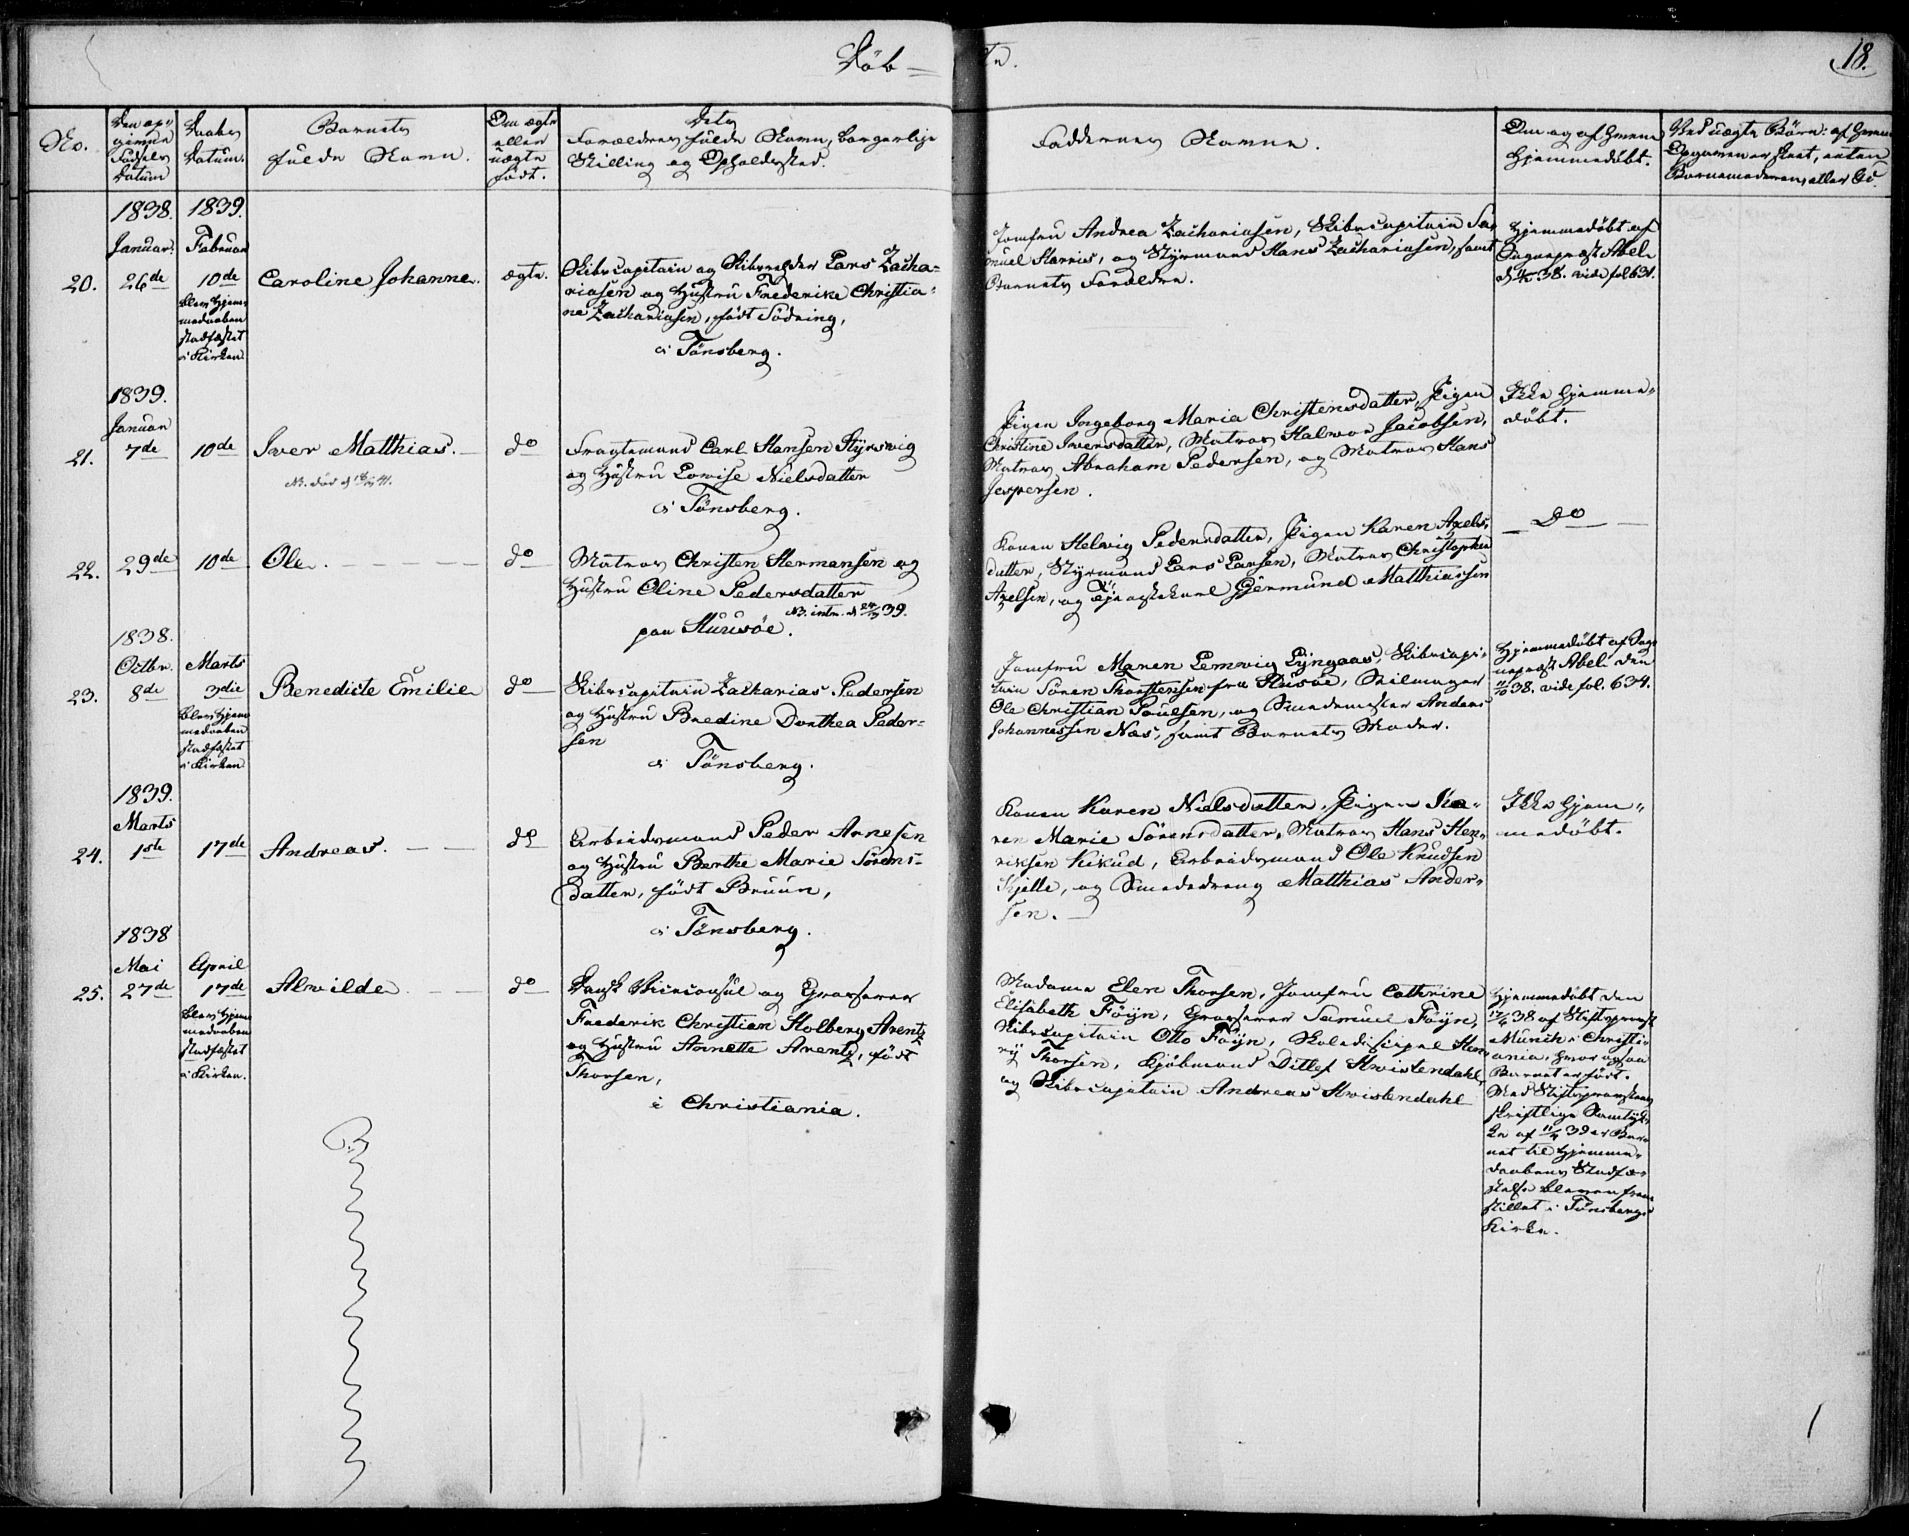 Døb=
te.
18.
No.
Den op-
givne
Fødsels
Datum
Daabs
Datum.
Barnets
fulde Navn.
Om ægte
eller
uægte
født.
Dets
Forældres fulde Navn, borgerlige
Stilling og Opholdssted.
Faddernes Navne.
Om og af hvem
hjemmedøbt.
Ved uægte Børn: af hvem
Opgaven er skeet, enten
Barnemoderen, eller
1838. 1839.
Januar. Februar
20. 26de 10de Caroline Johanne. ægte.
blev hjem-
medaaben
stadfæstet
i Kirken.
Skibscapitain og Skibsrheder Lars Zacha-
riasen og Hustru Frederike Christia-
ne Zachariasen, født Södring,
i Tönsberg.
Jomfru Andrea Zachariasen, Skibscapitain Sa-
muel Harris, og Styrmand Hans Zachariasen, samt
Barnets Forældre.
Hjemmedøbt af
Sogneprest Abel
38. vide fol 631.
1839.
Januar
21. 7de 10de Iver Matthias. do
NB. død d 41.
Fragtemand Carl Hansen Styrsvig
og Hustru Lowise Nielsdatter
i Tönsberg.
Pigen Ingeborg Maria Christensdatter, Pigen
Christine Iversdatter, Matros Halvor Jacobsen,
Matros Abraham Pedersen, og Matros Hans
Jespersen.
Ikke hjemme-
döbt.
22. 29de 10de Ole. do
Matros Christen Hermansen og
Hustru Oline Pedersdatter
NB. intr. d 39.
paa Huusöe.
Konen Helvig Pedersdatter, Pigen Karen Axels-
datter, Styrmand Lars Larsen, Matros Christopher
Axelsen, og Tjenestekarl Gjermund Matthiassen
Do
1838.
Octbr. Marts
23. 8de 3die Benedicte Emilie do
blev hjem-
medaaben
stadfæstet
i Kirken
Skibscapitain Zacharias Pedersen
og Hustru Bredine Dorthea Peder-
sen
i Tönsberg.
Jomfru Maren Lemvig Lyngaas, Skibscapi-
tain Sören Thorstensen fra Husöe, Seilmager
Ole Christian Poulsen, og Smedemester Anders
Johannessen Næs, samt Barnets Moder.
Hjemmedøbt af Sog-
neprest Abel den
38. vide fol. 634.
1839.
Marts
24. 1ste 17de Andreas. do
Arbeidsmand Peder Arnesen
og Hustru Berthe Marie Sörens-
datter, født Bruun,
i Tönsberg.
Konen Karen Nielsdatter, Pigen Ka-
ren Marie Sörensdatter, Matros Hans Hen-
riksen Kikud, Arbeidsmand Ole Knudsen
Kjelle, og Smededreng Matthias Ander-
sen.
Ikke hjem-
medøbt.
1838
Mai April
25. 27de 17de Alvilde. do
blev hjem-
medaaben
stadfæstet
i Kirken.
Dansk Viceconsul og Grosserer
Frederik Christian Holberg Arentz
og Hustru Annette Arentz, født
Thorsen,
i Christiania.
Madame Elen Thorsen, Jomfru Cathrine
Elisabeth Föyn, Grosserer Samuel Föyn,
Skibscapitain Otto Föyn, Skoledisicpel Hen-
ry Thorsen, Kjöbmand Ditlef Hvistendahl,
og Skibscapitain Andreas Hvistendahl
Hjemmedøbt den
38 af Stiftsprovst
Munch i Christi-
ania, hvor ogsaa
Barnet er født.
Med Stiftsprovstens
skriftlige Samtyk-
ke af 11/4 39 er Bar-
net til Hjemme-
daabens Stadfæ-
stelse bleven frem-
stillet i Tönsbergs
Kirke.